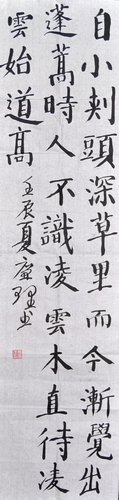 自小刾頭深草里而今漸覺出
蓬蒿時人不識凌雲木直待凌
雲始道高
壬辰夏